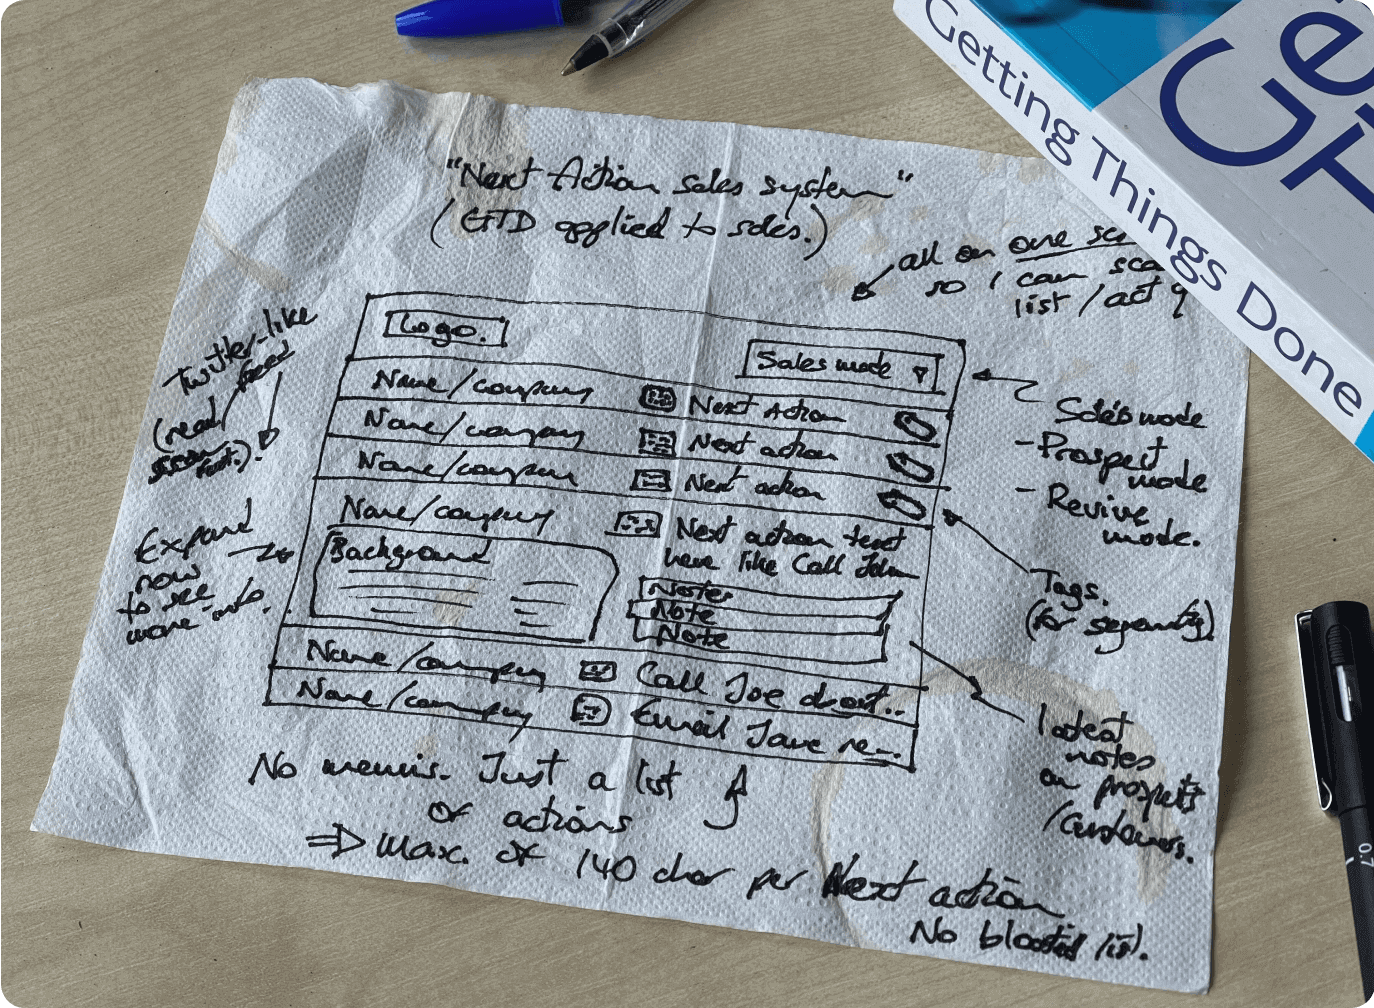 "Next Action sales system"
(GTD applied to sales.)
all on one
so I can
list / act
Twitter-like
feed
(read/
scan
fast.)
Logo.
Sales mode
Name/company
Next Action
Name/company
Next action
Name/company
Next action
Name/company
Next action text
here like Call John
Background
Notes
Note
Note
Name/company
Call Joe about..
Name/company
Email Jane re-..
Expand
row
to see
more info.
Sales mode
- Prospect
mode
- Revive
mode.
Tags.
(for segmenting)
latest
notes
on prospects
/customers.
No menus. Just a list
of actions
⇒ Max. of 140 char per Next action
No bloated list.
Getting Things Done
Ge
GT
0.7